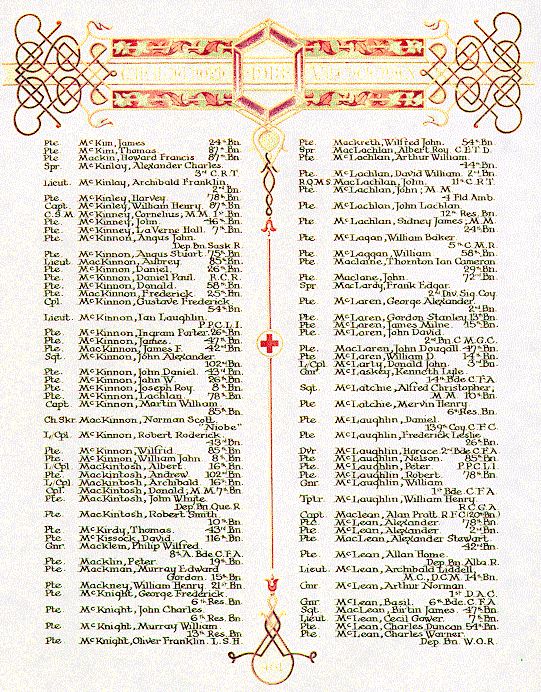 1918
Pte. McKim, James 24th Bn.
Pte McKim, Thomas 87th Bn.
Pte Mackin, Howard Francis 87th Bn.
Spr McKinlay, Alexander Charles.
3rd C.R.T
Lieut. McKinlay, Archibald Franklin.
2nd Bn.
Pte McKinley, Harvey 78th Bn.
Capt. McKinley, William Henry. 87th Bn.
C.S.M McKinney, Cornelius; M.M. 1st Bn.
Pte. McKinney, John 46th Bn.
Pte. McKinney, LaVerne Hall. 7th Bn.
Pte. McKinnon, Angus John.
Dep. Bn. Sask R.
Pte. McKinnon, Angus Stuart. 75th Bn.
Lieut MacKinnon, Aubrey. 85th Bn.
Pte. McKinnon, Daniel. 26th Bn.
Pte. McKinnon, Daniel Paul. R.C.R.
Pte. McKinnon, Donald. 58th Bn.
Pte. MacKinnon, Frederick 25th Bn.
Cpl. McKinnon, Gustave Frederick
54th Bn.
Lieut. McKinnon, Ian Laughlin
P.P.C.L.I.
Pte. McKinnon, Ingram Porter. 26th Bn.
Pte. McKinnon, James. 47th Bn.
Pte. MacKinnon, James F. 42nd Bn.
Sgt. McKinnon, John Alexander
102nd Bn.
Pte. McKinnon, John Daniel. 43rd Bn.
Pte. McKinnon, John W. 26th Bn.
Pte. McKinnon, Joseph Roy. 8th Bn.
Pte. McKinnon, Lachlan 78th Bn.
Capt. McKinnon, Martin William
85th Bn.
Ch.Skr. MacKinnon, Norman Scott.
"Niobe"
L/Cpl McKinnon, Robert Roderick.
43rd Bn.
Pte. McKinnon, Wilfrid 85th Bn
Pte. McKinnon, William John 8th Bn.
L/Cpl. Mackintosh, Albert 16th Bn.
Pte. Mackintosh, Andrew 102nd Bn
L/Cpl. Mackintosh, Archibald 16th Bn.
Cpl. MacKintosh, Donald; M.M. 7th Bn.
Pte. MacKintosh, John Whyte.
Dep. Bn. Que R
Pte. MacKintosh, Robert Smith.
10th Bn
Pte. McKirdy, Thomas. 43rd Bn
Pte. McKissock, David 116th Bn.
Gnr. Macklem, Philip Wilfred.
8th A. Bde C.F.A.
Pte. Macklin, Peter 19th Bn.
Pte. Mackman, Murray Edward
Gordon. 15th Bn
Pte. Mackney, William Henry. 21st Bn.
Pte. McKnight, George Frederick.
6th Res. Bn
Pte. McKnight, John Charles.
6th Res. Bn.
Pte. McKnight, Murray William.
13th Res. Bn
Pte. McKnight, Oliver Franklin. L.S.H.
Pte. Mackreth, Wilfred John. 54th Bn.
Spr. MacLachlan, Albert Roy. C.E.T.D.
Pte. McLachlan, Arthur William.
44th Bn.
Pte. McLachlan, David William. 2nd Bn.
R.Q.M.S. MacLachlan, John. 11th C.R.T.
Pte. McLachlan, John; M.M.
4 Fld Amb.
Pte. McLachlan, John Lachlan
12th Res. Bn.
Pte. McLachlan, Sidney James; M.M.
24th Bn
Pte. McLagan, William Baker
5th C.M.R.
Pte. McLaggan, William 58th Bn.
Pte. Maclaine, Thornton Ian Cameron
29th Bn.
Pte. Maclane, John. 72nd Bn
Spr. MacLardy, Frank Edgar.
2nd Div. Sig. Coy.
Pte. McLaren, George Alexander.
2nd Bn.
Pte. McLaren, Gordon Stanley 13th Bn.
Pte. McLaren, James Milne. 75th Bn.
Pte. McLaren, John David.
2nd Bn C.M.G.C.
Pte. MacLaren, John Dougall. 47th Bn.
Pte. McLaren, William D. 14th Bn.
L/Cpl. McLarty, Donald John. 3rd Bn.
Gnr McLaskey, Kenneth Lyle.
14th Bde C.F.A
Sgt. McLatchie, Alfred Christopher;
M.M. 10th Bn
Pte. McLatchie, Mervin Henry
6th Res. Bn.
Pte. McLaughlin, Daniel.
139th Coy C.F.C.
Pte. McLaughlin, Frederick Leslie
26th Bn.
Dvr McLaughlin, Horace 2nd Bde C.F.A
Pte. McLaughlin, Nelson. 85th Bn.
Pte. McLaughlin, Peter. P.P.C.L.I.
Pte. McLaughlin, Robert. 78th Bn
Gnr McLaughlin, William
1st Bde C.F.A
Tptr McLaughlin, William Henry.
R.C.G.A.
Capt. Maclean, Alan Pratt. R.F.C (20th Bn)
Pte. McLean, Alexander 78th Bn
Pte. McLean, Alexander. 2nd Bn.
Pte. MacLean, Alexander Stewart.
42nd Bn
Pte. McLean, Allan Home.
Dep. Bn. Alba R.
Lieut. McLean, Archibald Liddell,
M.C., D.C.M. 14th Bn.
Gnr. McLean, Arthur Norman
1st D.A.C.
Gnr McLean, Basil. 6th Bde. C.F.A
Sgt MacLean, Birtin James. 47th Bn
Lieut McLean, Cecil Gower. 7th Bn.
Pte. McLean, Charles Duncan 54th Bn.
Pte. McLean, Charles Warner
Dep. Bn. W.O.R.